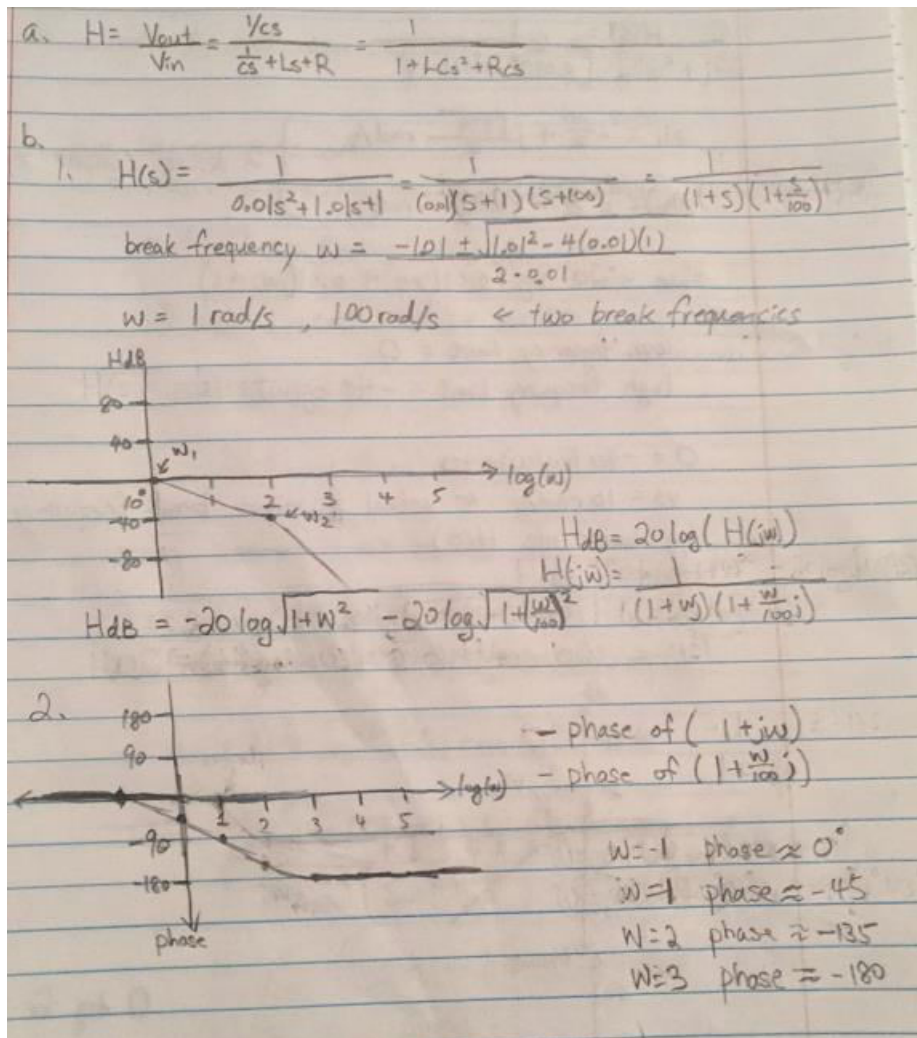 a. H = Vout/Vin = (1/Cs)/(1/Cs + Ls + R) = 1/(1+LCs²+RCs)
b.
1. H(s) = 1/(0.01s²+1.01s+1) = 1/((0.01)(s+1)(s+100)) = 1/((1+s)(1+s/100))
break frequency w = (-1.01 ± √(1.01² - 4(0.01)(1)))/(2·0.01)
w = 1 rad/s , 100 rad/s ← two break frequencies
HdB
80
40
w₁
→ log(w)
10° 1 2 3 4 5
-40 ← w₂
-80
HdB = 20 log( H(jw))
H(jw) = 1/((1+wj)(1+w/100 j))
HdB = -20 log √(1+w²) - 20 log √(1+(w/100)²)
2.
180
90
→ log(w)
1 2 3 4 5
-90
-180
phase
- phase of (1+jw)
- phase of (1+w/100 j)
w=-1 phase ≈ 0°
w=1 phase ≈ -45
w=2 phase ≈ -135
w=3 phase ≈ -180